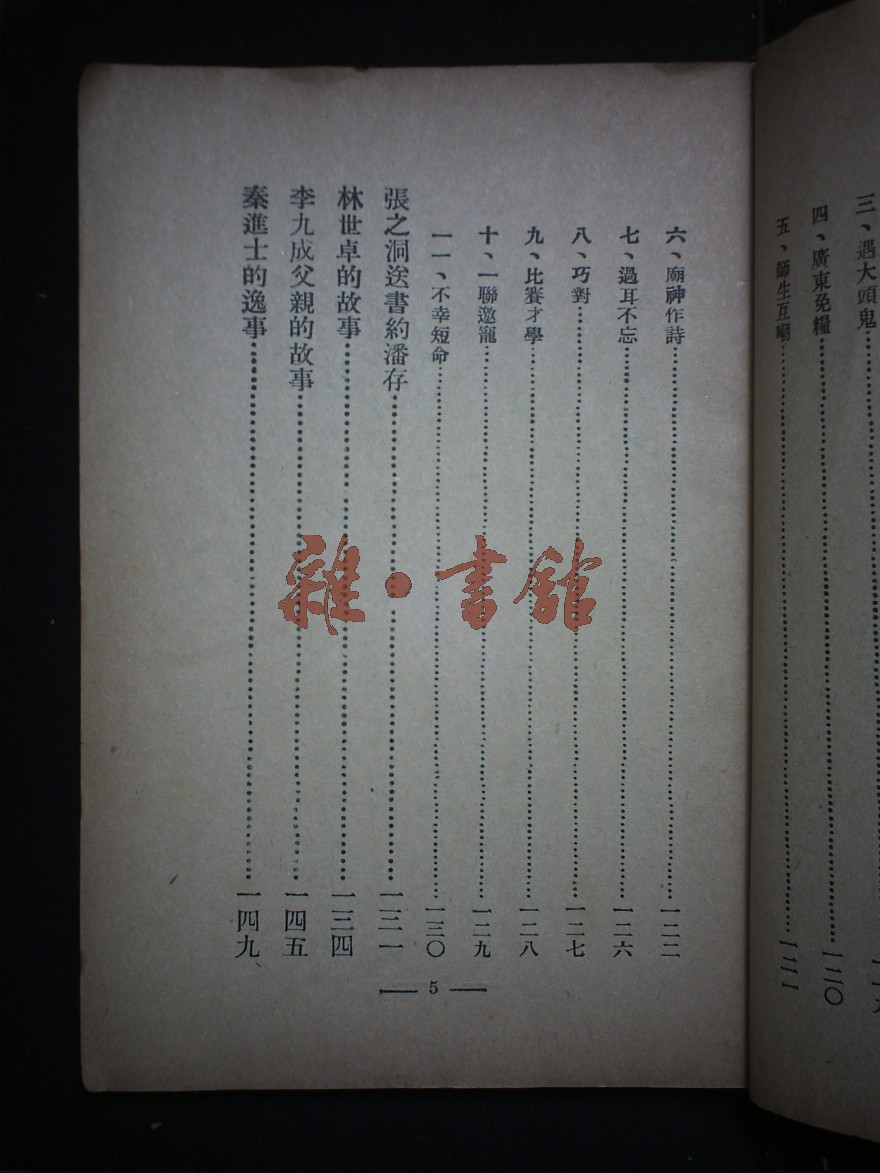 三、遇大頭鬼
四、廣東免糧……一二〇
五、師生互嘲……一二一
六、廟神作詩……一二二
七、過耳不忘……一二六
八、巧對……一二七
九、比賽才學……一二八
十、一聯邀寵……一二九
一一、不幸短命……一三〇
張之洞送書約潘存……一三一
林世卓的故事……一三四
李九成父親的故事……一四五
秦進士的逸事……一四九
— 5 —
雜·書館